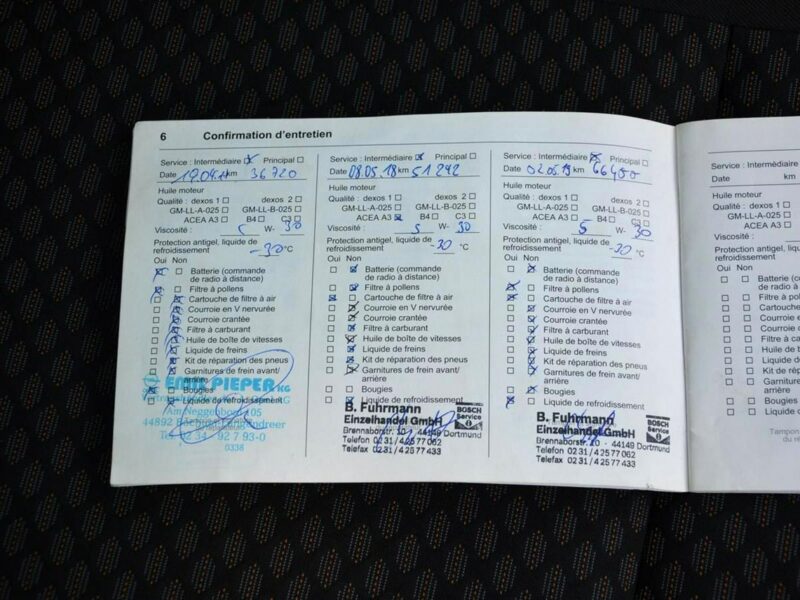 6 Confirmation d'entretien
Service : Intermédiaire Principal
Date 36 720
Huile moteur
Qualité : dexos 1 dexos 2
GM-LL-A-025 GM-LL-B-025
ACEA A3 B4 C3
Viscosité : 5 W- 30
Protection antigel, liquide de
refroidissement -30 °C
Oui Non
Batterie (commande
de radio à distance)
Filtre à pollens
Cartouche de filtre à air
Courroie en V nervurée
Courroie crantée
Filtre à carburant
Huile de boîte de vitesses
Liquide de freins
Kit de réparation des pneus
Garnitures de frein avant/
arrière
Bougies
Liquide de refroidissement
PIEPER KG
44892
Tel. 02 34 - 92 7 93-0
0338
Service : Intermédiaire Principal
Date 08.05.18 km 51 242
Huile moteur
Qualité : dexos 1 dexos 2
GM-LL-A-025 GM-LL-B-025
ACEA A3 B4 C3
Viscosité : 5 W- 30
Protection antigel, liquide de
refroidissement -20 °C
Oui Non
Batterie (commande
de radio à distance)
Filtre à pollens
Cartouche de filtre à air
Courroie en V nervurée
Courroie crantée
Filtre à carburant
Huile de boîte de vitesses
Liquide de freins
Kit de réparation des pneus
Garnitures de frein avant/
arrière
Bougies
Liquide de refroidissement
B. Fuhrmann
Einzelhandel GmbH
Brennaborstr. 10 - 44149 Dortmund
Telefon 02 31 / 4 25 77 062
Telefax 02 31 / 4 25 77 433
BOSCH
Service
Service : Intermédiaire Principal
Date 02.05.19 km 66 400
Huile moteur
Qualité : dexos 1 dexos 2
GM-LL-A-025 GM-LL-B-025
ACEA A3 B4 C3
Viscosité : 5 W- 30
Protection antigel, liquide de
refroidissement -20 °C
Oui Non
Batterie (commande
de radio à distance)
Filtre à pollens
Cartouche de filtre à air
Courroie en V nervurée
Courroie crantée
Filtre à carburant
Huile de boîte de vitesses
Liquide de freins
Kit de réparation des pneus
Garnitures de frein avant/
arrière
Bougies
Liquide de refroidissement
B. Fuhrmann
Einzelhandel GmbH
Brennaborstr. 10 - 44149 Dortmund
Telefon 02 31 / 4 25 77 062
Telefax 02 31 / 4 25 77 433
BOSCH
Service
Service : Intermédiaire
Date km
Huile moteur
Qualité : dexos 1
GM-LL-A-025
ACEA A3
Viscosité :
Protection antigel, liquid
refroidissement
Oui Non
Batterie (com
de radio à dis
Filtre à pollen
Cartouche de
Courroie en V
Courroie cra
Filtre à carb
Huile de boî
Liquide de f
Kit de répar
Garnitures
arrière
Bougies
Liquide de
Tampon
du ré